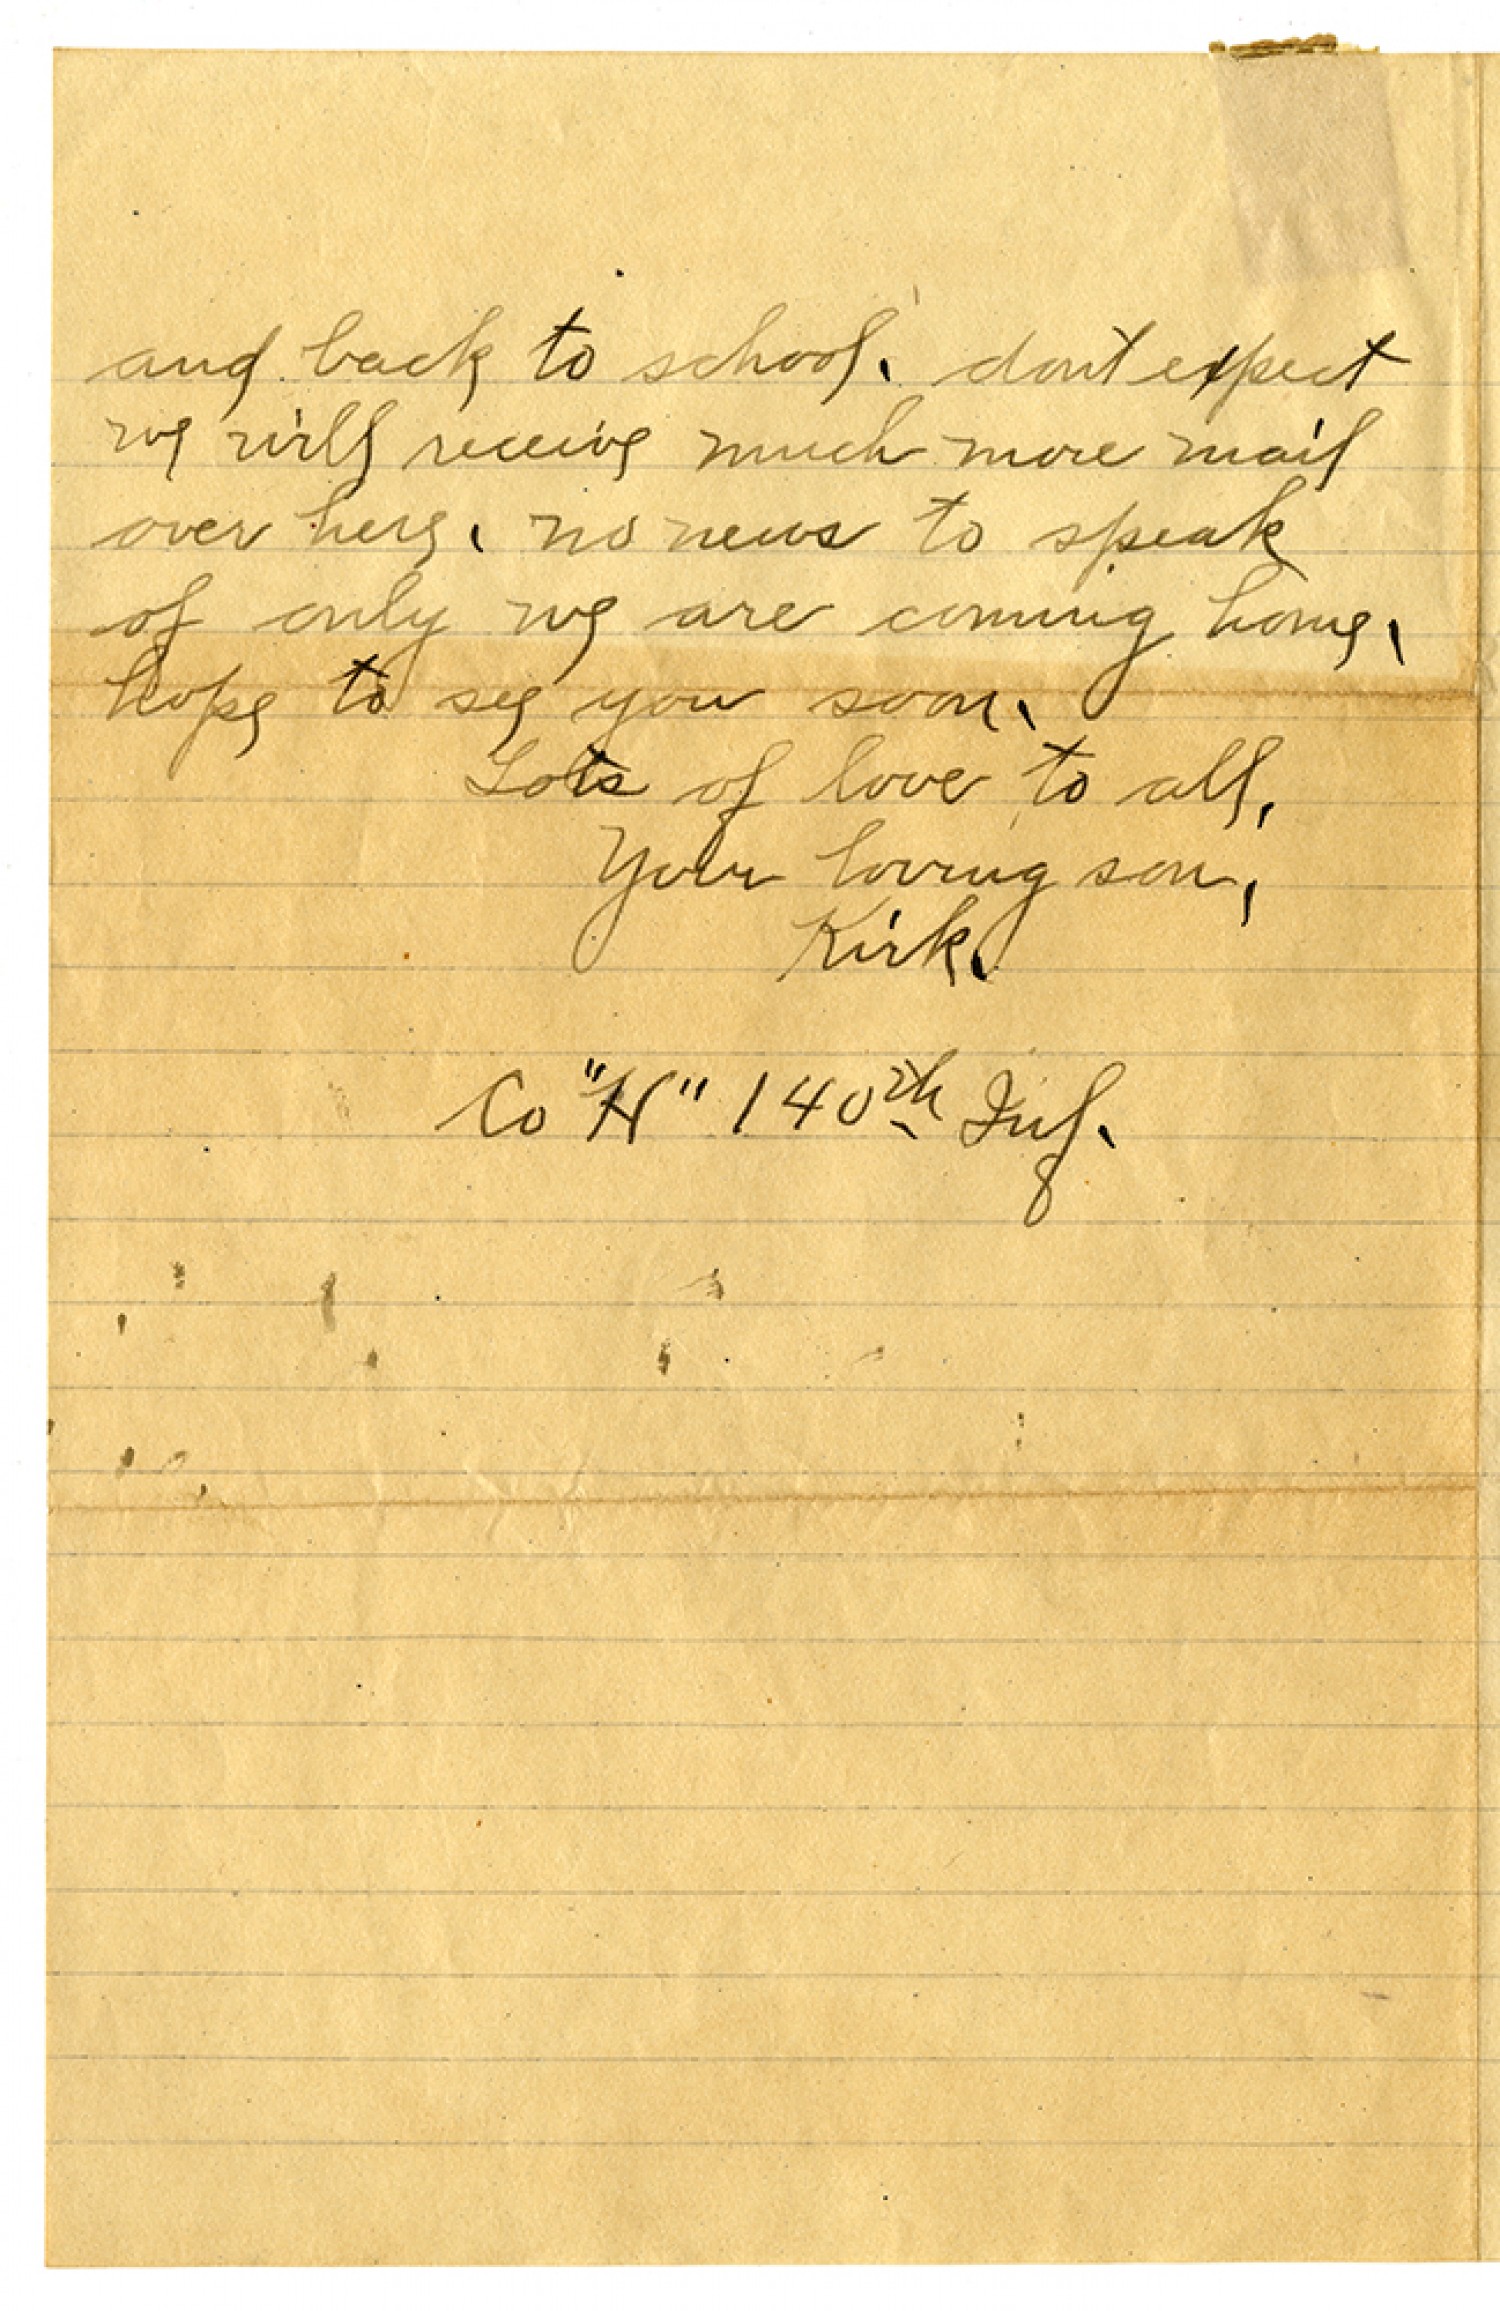 and back to school. don't expect
we will receive much more mail
over here. no news to speak
of only we are coming home.
hope to see you soon.
Lots of love to all,
Your loving son,
Kirk.
Co "H" 140th Inf.